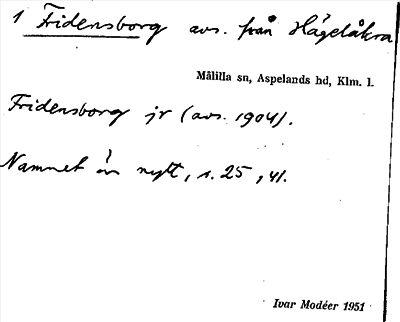 1 Fridensborg avs. från Hägelåkra
Målilla sn, Aspelands hd, Klm. l.
Fridensborg jr (avs. 1904).
Namnet är nytt, s. 25, 41.
Ivar Modéer 1951